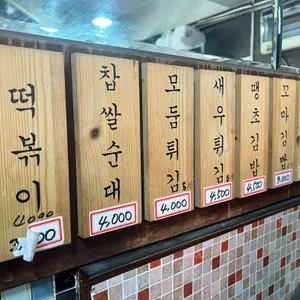 떡볶이
4,000
찹쌀순대
4,000
모둠튀김
4,000
새우튀김
4,500
땡초김밥
4,500
꼬마김밥
3,000